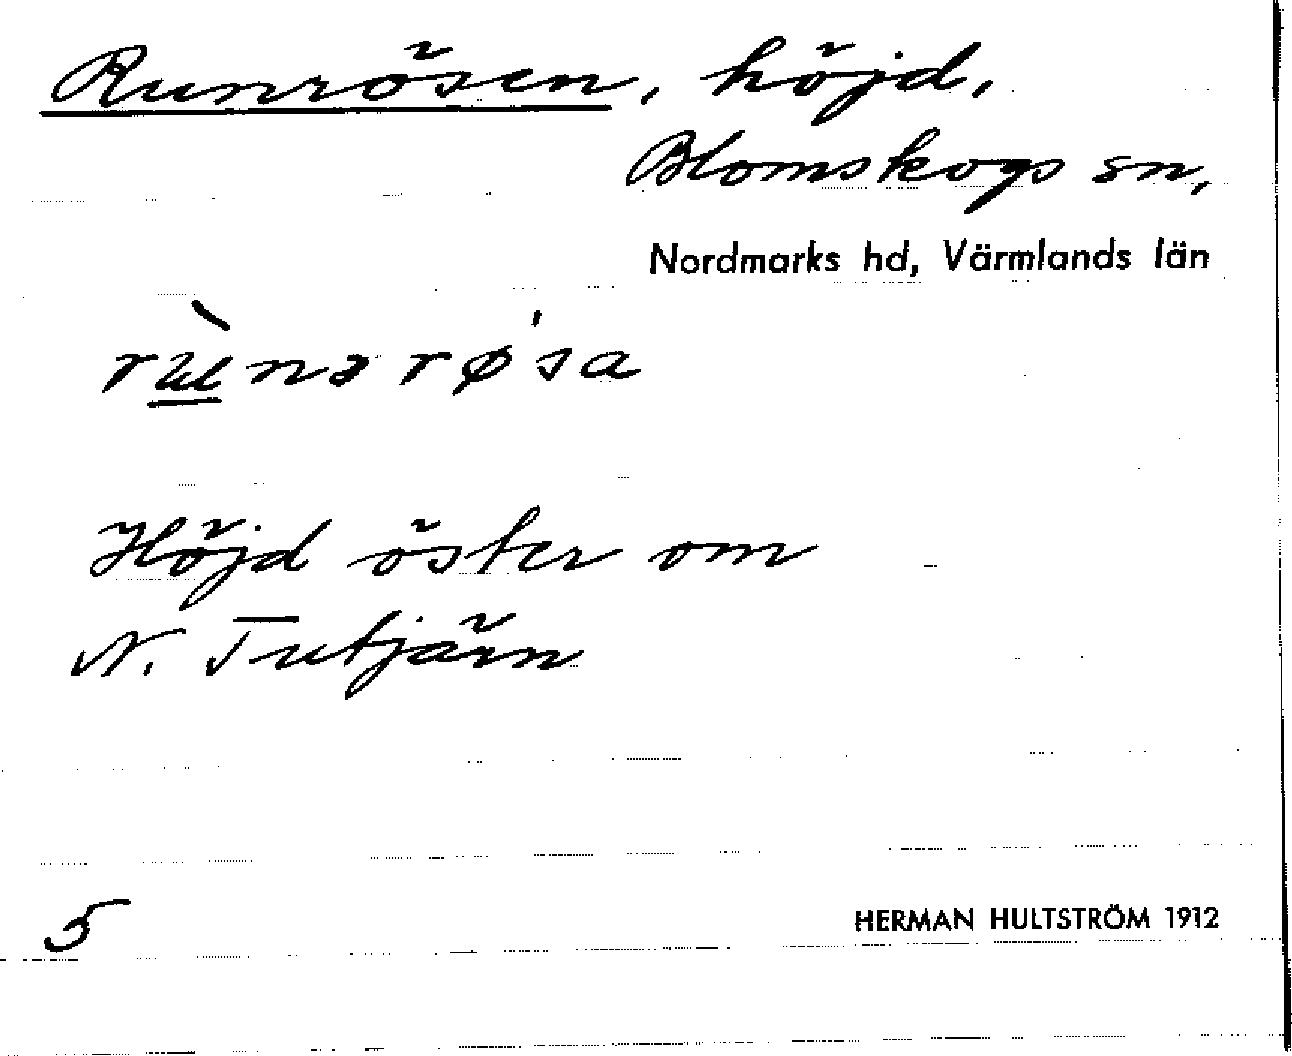 Runrösen, höjd,
Blomskogs sn,
Nordmarks hd, Värmlands län
rùnərø'sa
Höjd öster om
N. Tutjärn
5
HERMAN HULTSTRÖM 1912